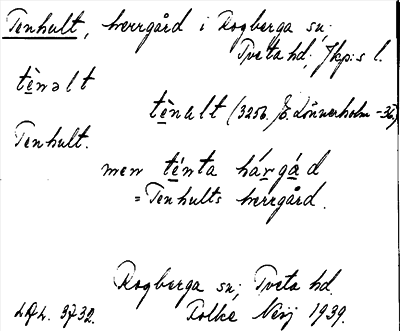 Tenhult, herrgård i Rogberga sn;
Tveta hd; Jkp:s l.
tè̱nəlt
tè̱nalt (3256. E. Lönnerholm -36)
Tenhult.
men té̱nta há̱rgá̱d
= Tenhults herrgård.
Rogberga sn; Tveta hd.
LAL. 3732. Folke Neij 1939.